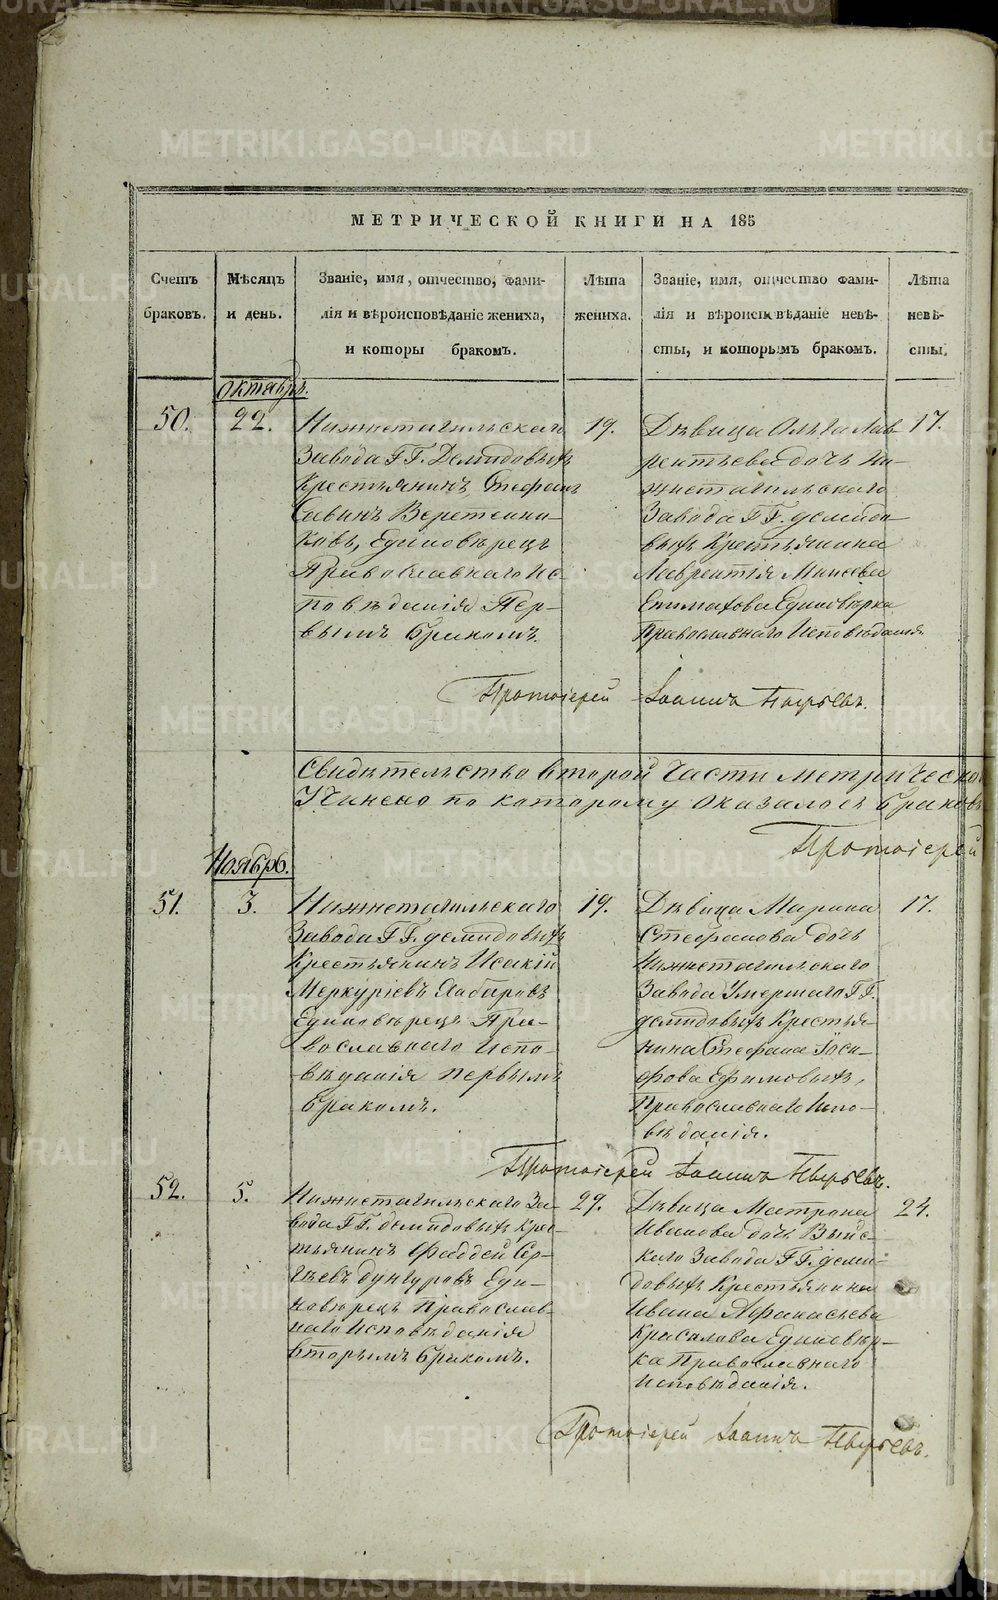 МЕТРИЧЕСКОЙ КНИГИ НА 185
Счетъ
браковъ.
Мѣсяцъ
и день.
Званіе, имя, отчество, фами-
лія и вѣроисповѣданіе жениха,
и которы бракомъ.
Лѣта
жениха.
Званіе, имя, отчество фами-
лія и вѣроисповѣданіе невѣ-
сты, и которымъ бракомъ.
Лѣта
невѣ-
сты.
Октябрь.
50.
22.
Нижнетагильскаго
Завода ГГ. Демидовыхъ
Крестьянинъ Стефанъ
Савинъ Веретенни-
ковъ, Единовѣрецъ
Православнаго Ис-
повѣданія Пер-
вымъ бракомъ.
19.
Дѣвица Ольга Лав-
рентьева дочь Ни-
жнетагильскаго
Завода ГГ. Демидо-
выхъ Крестьянина
Лаврентія Минѣева
Епимахова Единовѣрка
Православнаго Исповѣданія.
17.
Протоіерей Іоаннъ Пырьевъ.
Свидѣтельство второй части метрической
Учинено по которому оказалось браковъ
Протоіерей
Ноябрь.
51.
3.
Нижнетагильскаго
Завода ГГ. Демидовыхъ
Крестьянинъ Исакій
Меркуріевъ Хабаровъ
Единовѣрецъ Пра-
вославнаго Испо-
вѣданія первымъ
бракомъ.
19.
Дѣвица Марина
Стефанова дочь
Нижнетагильскаго
Завода Умершаго ГГ.
Демидовыхъ Крестья-
нина Стефана Іоси-
фова Ефимовыхъ,
Православнаго Испо-
вѣданія.
17.
Протоіерей Іоаннъ Пырьевъ.
52.
5.
Нижнетагильскаго За-
вода ГГ. Демидовыхъ Крес-
тьянинъ Фаддей Сер-
гѣевъ Дунгуровъ Еди-
новѣрецъ Православ-
наго Исповѣданія
вторымъ бракомъ.
27.
Дѣвица Матрона
Иванова дочь Выйс-
каго Завода ГГ. Деми-
довыхъ Крестьянина
Ивана Афанасьева
Красилова Единовѣр-
ка Православнаго
Исповѣданія.
24.
Протоіерей Іоаннъ Пырьевъ.
METRIKI.GASO-URAL.RU